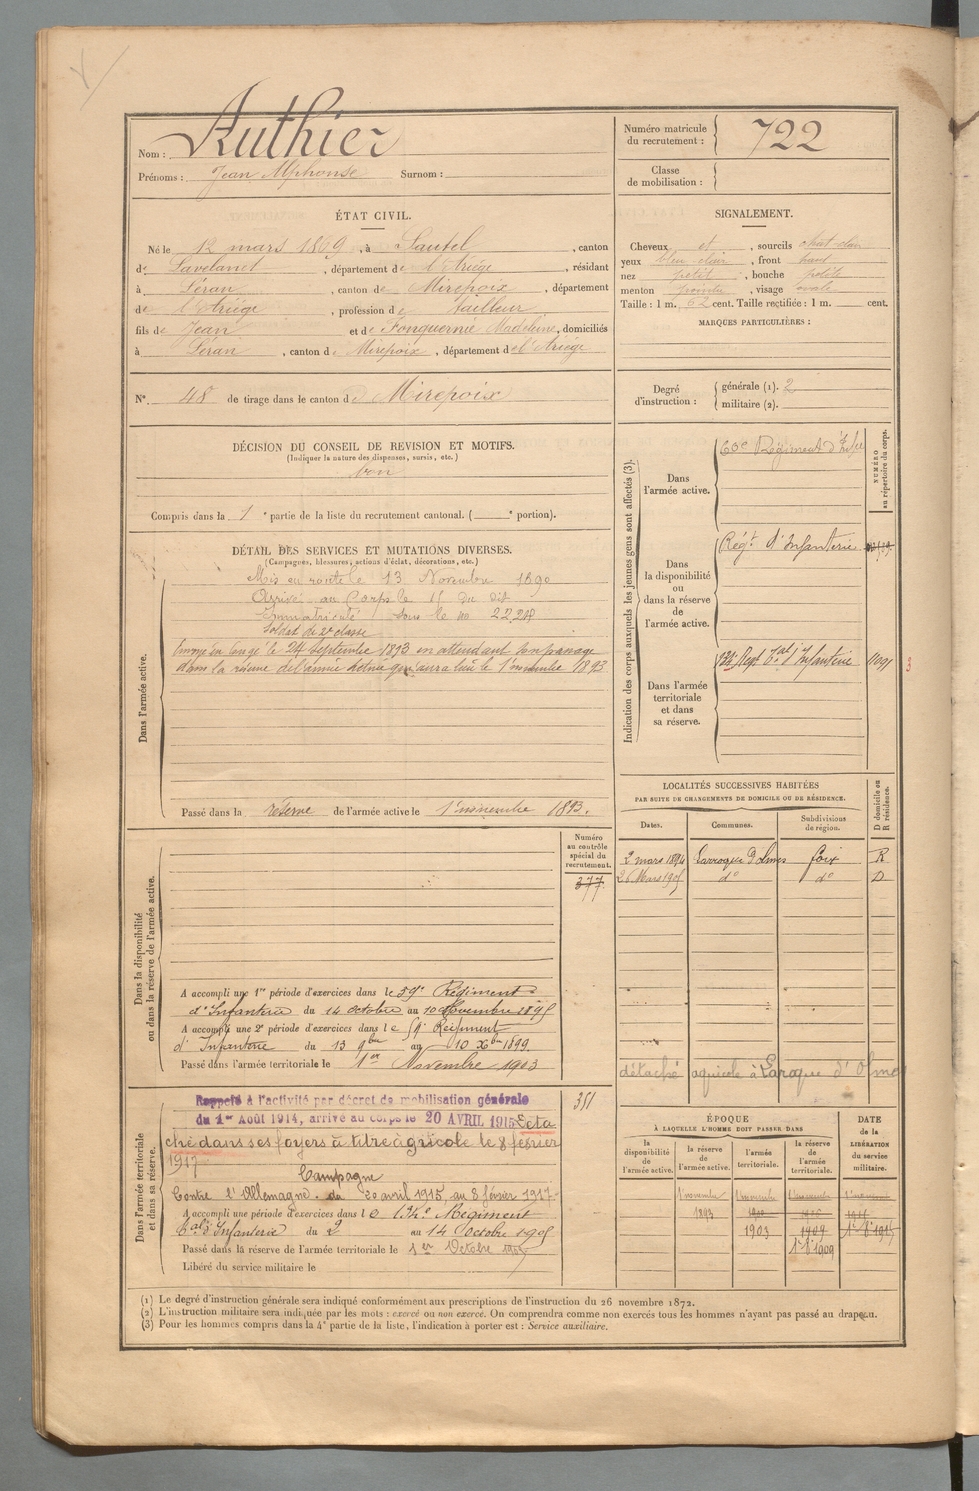 Nom : Authier
Prénoms : Jean Alphonse Surnom :
Numéro matricule du recrutement : 722
Classe de mobilisation :
ÉTAT CIVIL.
Né le 12 mars 1869, à Sautel, canton
de Lavelanet, département de l'Ariège, résidant
à Léran, canton de Mirepoix, département
de l'Ariège, profession de tailleur
fils de Jean et de Fonquernie Madeleine, domiciliés
à Léran, canton de Mirepoix, département de l'Ariège
N° 48 de tirage dans le canton de Mirepoix
SIGNALEMENT.
Cheveux et, sourcils chat-clair
yeux bleu clair, front haut
nez petit, bouche petite
menton pointu, visage ovale
Taille : 1 m. 62 cent. Taille rectifiée : 1 m. cent.
MARQUES PARTICULIÈRES :
Degré d'instruction : générale (1). 2
militaire (2).
DÉCISION DU CONSEIL DE REVISION ET MOTIFS.
(Indiquer la nature des dispenses, sursis, etc.)
bon
Compris dans la 1e partie de la liste du recrutement cantonal. ( e portion).
DÉTAIL DES SERVICES ET MUTATIONS DIVERSES.
(Campagnes, blessures, actions d'éclat, décorations, etc.)
Dans l'armée active.
Mis en route le 13 Novembre 1890
Arrivé au Corps le 15 du dit
Immatriculé sous le no
Soldat de 2e classe
Envoyé en congé le 24 Septembre 1893 en attendant son passage
dans la réserve de l'armée active qui aura lieu le 1er novembre 1893
Passé dans la réserve de l'armée active le 1er novembre 1893.
Indication des corps auxquels les jeunes gens sont affectés (3).
NUMÉRO au répertoire du corps.
Dans l'armée active.
Régiment d'Infie
Dans la disponibilité ou dans la réserve de l'armée active.
Régt d'Infanterie
Dans l'armée territoriale et dans sa réserve.
134e Regt Tal d'Infanterie
LOCALITÉS SUCCESSIVES HABITÉES
PAR SUITE DE CHANGEMENTS DE DOMICILE OU DE RÉSIDENCE.
Dates. Communes. Subdivisions de région. D domicile ou R résidence.
2 mars 1894 Larroque d'Olmes Foix R
26 Mars 1905 do do D
détaché agricole à Laroque d'Olmes
Dans la disponibilité ou dans la réserve de l'armée active.
Numéro au contrôle spécial du recrutement.
377
A accompli une 1re période d'exercices dans le 59e Régiment
d'Infanterie du 14 octobre au 10 Novembre 1895
A accompli une 2e période d'exercices dans le 59e Régiment
d'Infanterie du 13 9bre au 10 Xbre 1899.
Passé dans l'armée territoriale le 1er Novembre 1903
Dans l'armée territoriale et dans sa réserve.
351
Rappelé à l'activité par décret de mobilisation générale
du 1er Août 1914, arrivé au corps le 20 AVRIL 1915 Déta
ché dans ses foyers à titre agricole le 8 février
1917
Campagne
Contre l'Allemagne. du 20 avril 1915, au 8 février 1917.
A accompli une période d'exercices dans le 134e Régiment
Tal d'Infanterie du 2 au 14 Octobre 1905
Passé dans la réserve de l'armée territoriale le 1er Octobre 1909
Libéré du service militaire le
ÉPOQUE
À LAQUELLE L'HOMME DOIT PASSER DANS
DATE de la LIBÉRATION du service militaire.
la disponibilité de l'armée active. la réserve de l'armée active. l'armée territoriale. la réserve de l'armée territoriale.
1er novembre 1er novembre 1er novembre 1er novembre
1893 1900 1906 1915
1903 1909
1er 8e 1909
(1) Le degré d'instruction générale sera indiqué conformément aux prescriptions de l'instruction du 26 novembre 1872.
(2) L'instruction militaire sera indiquée par les mots : exercé ou non exercé. On comprendra comme non exercés tous les hommes n'ayant pas passé au drapeau.
(3) Pour les hommes compris dans la 4e partie de la liste, l'indication à porter est : Service auxiliaire.